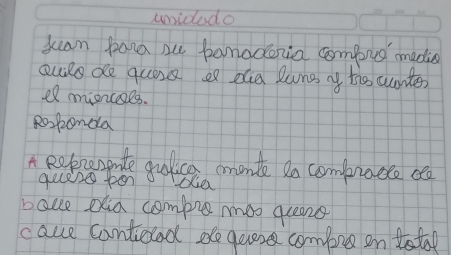 unidado
Juan para su panaderia compro medio
quilo de queso el dia lunes y tres cuartos
el miercoles.
Responda
A Represente grafica mente la comprade de
queso por dia
b que dia compro mas queso
c que cantidad de queso compro en total